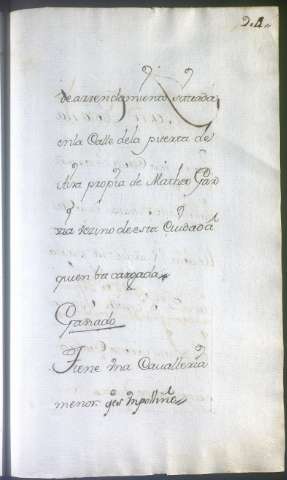 de arrendamiento situada
en la Calle de la puerta de
propria de Matheo Gar
zia vezino de esta Ciudad á
quien ba cargada
Ganado
Tiene Una Cavalleria
menor q.e es Un pollino